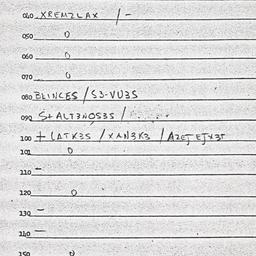 040 XREMZLAX / -
050 0
060 0
070 0
080 BLINCES / S3-VU3S
090 S+ALT3NOS3S /
100 + LATK3S / XAN3K3 / AZEJEJX3T
101 0
110 -
120 0
130 -
140 -
150 0